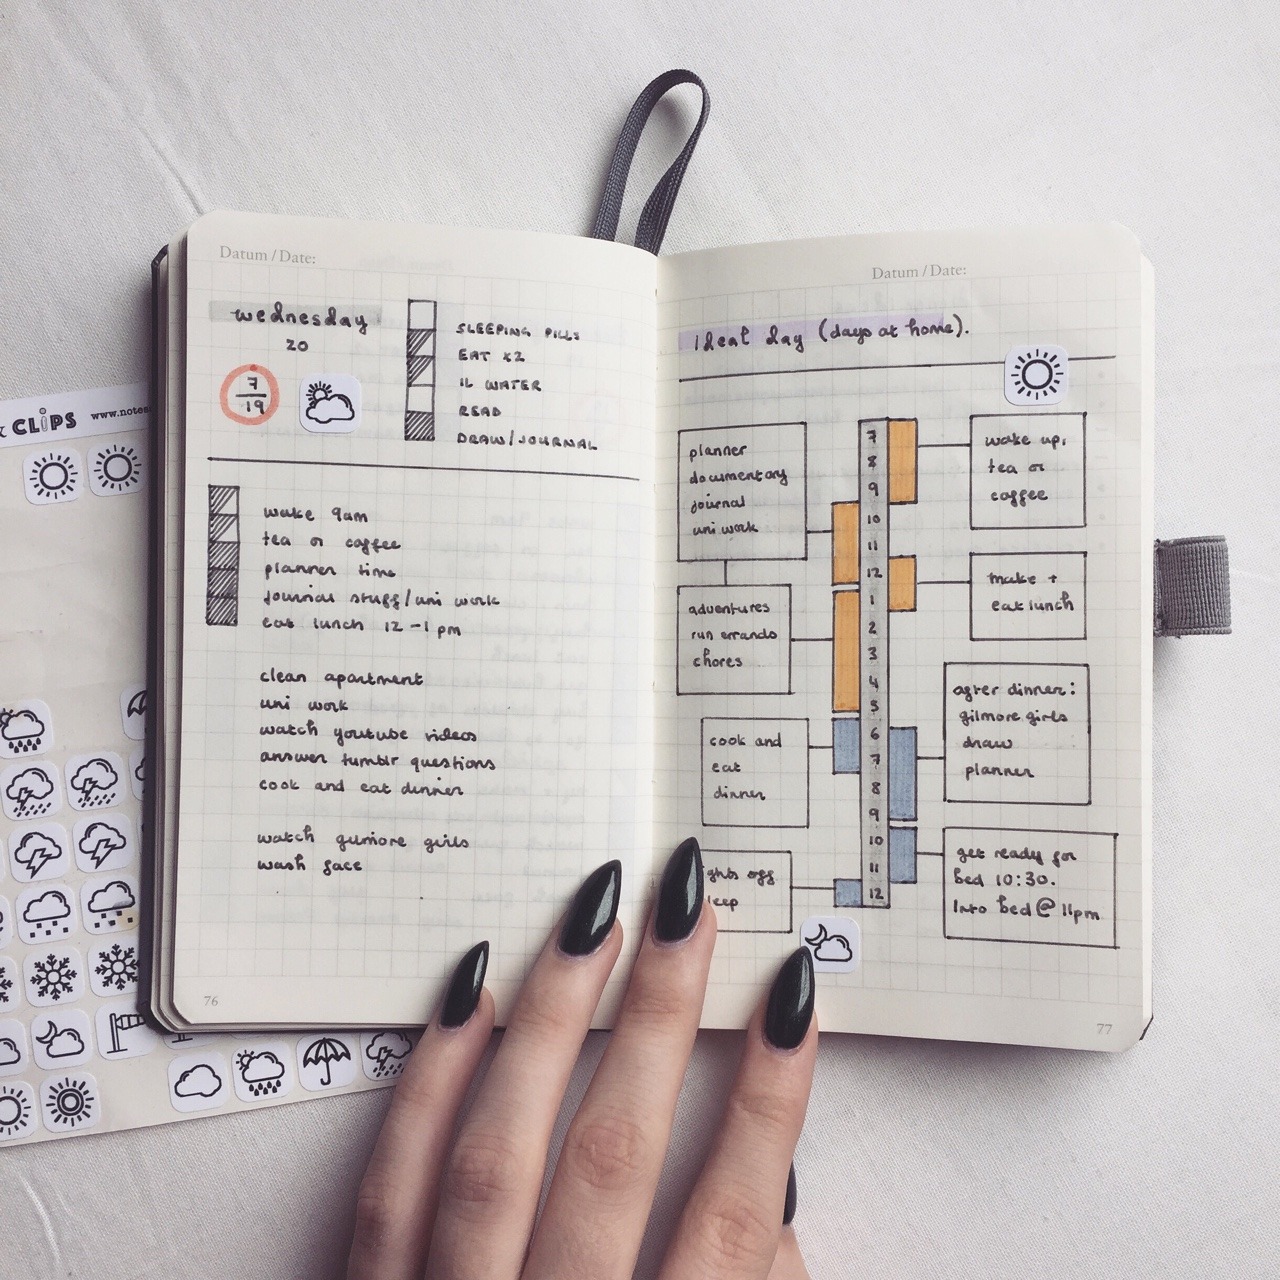 & CLiPS www.notes
Datum / Date:
wednesday
20
7
19
SLEEPING PILLS
EAT x2
1L WATER
READ
DRAW/JOURNAL
wake 9am
tea or coffee
planner time
journal stuff/uni work
eat lunch 12-1pm
clean apartment
uni work
watch youtube videos
answer tumblr questions
cook and eat dinner
watch gilmore girls
wash face
76
Datum / Date:
Ideal day (days at home).
planner
documentary
journal
uni work
adventures
run errands
chores
cook and
eat
dinner
ghts off
leep
7
8
9
10
11
12
1
2
3
4
5
6
7
8
9
10
11
12
wake up,
tea or
coffee
make +
eat lunch
after dinner:
gilmore girls
draw
planner
get ready for
bed 10:30.
Into bed @ 11pm
77